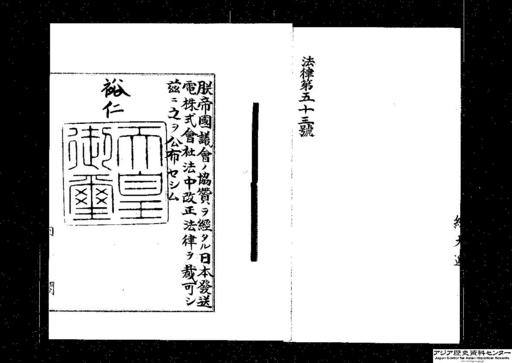 法律第五十三號
朕帝國議會ノ協贊ヲ經タル日本發送
電株式會社法中改正法律ヲ裁可シ
茲ニ之ヲ公布セシム
裕仁
天皇
御璽
内閣
アジア歴史資料センター
Japan Center for Asian Historical Records